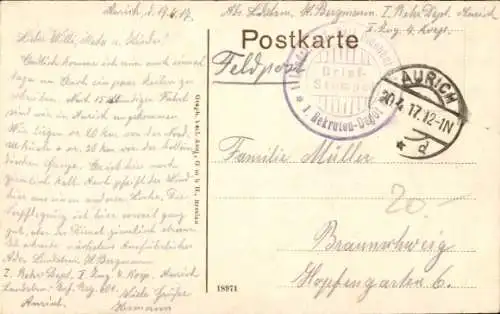 Aurich, d. 19.4.17.
Liebe Willi, Meta u. Kinder!
Endlich komme ich nun auch einmal
dazu an Euch ein paar Zeilen zu
schreiben. Nach 15 Fahrt
sind wir in Aurich angekommen.
Wir liegen ca 20 km von der Nord
u. 30 km von der hollän
dischen Grenze. Es ist hier noch
ziemlich kalt. Auch pfeift der Wind
hier aus einem anderen Loche. Die
Verpflegung ist hier soweit ganz
gut, aber der Dienst ziemlich stramm.
Ich schreibe nächstens Ausführlicher
Adr. Landstm. H. Bergmann
I. Rekr Dept. I Zug 9. Korp. Aurich
Landstm.
Aurich. Viele Grüße
Hermann
Adr. Landstm. H. Bergmann. I. Rekr. Dept. Aurich
I Zug 9. Korp.
Postkarte
Feldpost
Brief-
Stempel
I. Rekruten-Depot
AURICH
20.4.17.12-1N
* d
Familie Müller
20.-
Braunschweig
Hopfengarten 6.
18971